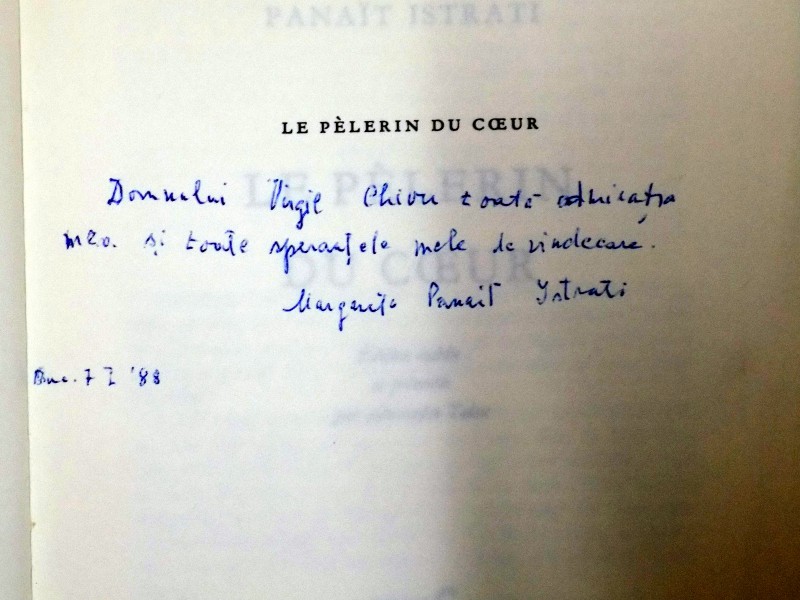 PANAÏT ISTRATI
LE PÈLERIN DU CŒUR
Domnului Virgil Chivu toată admirația
mea și toate speranțele mele de vindecare.
LE PÈLERIN
DU CŒUR
Margareta Panait Istrati
Buc. 7 I '88